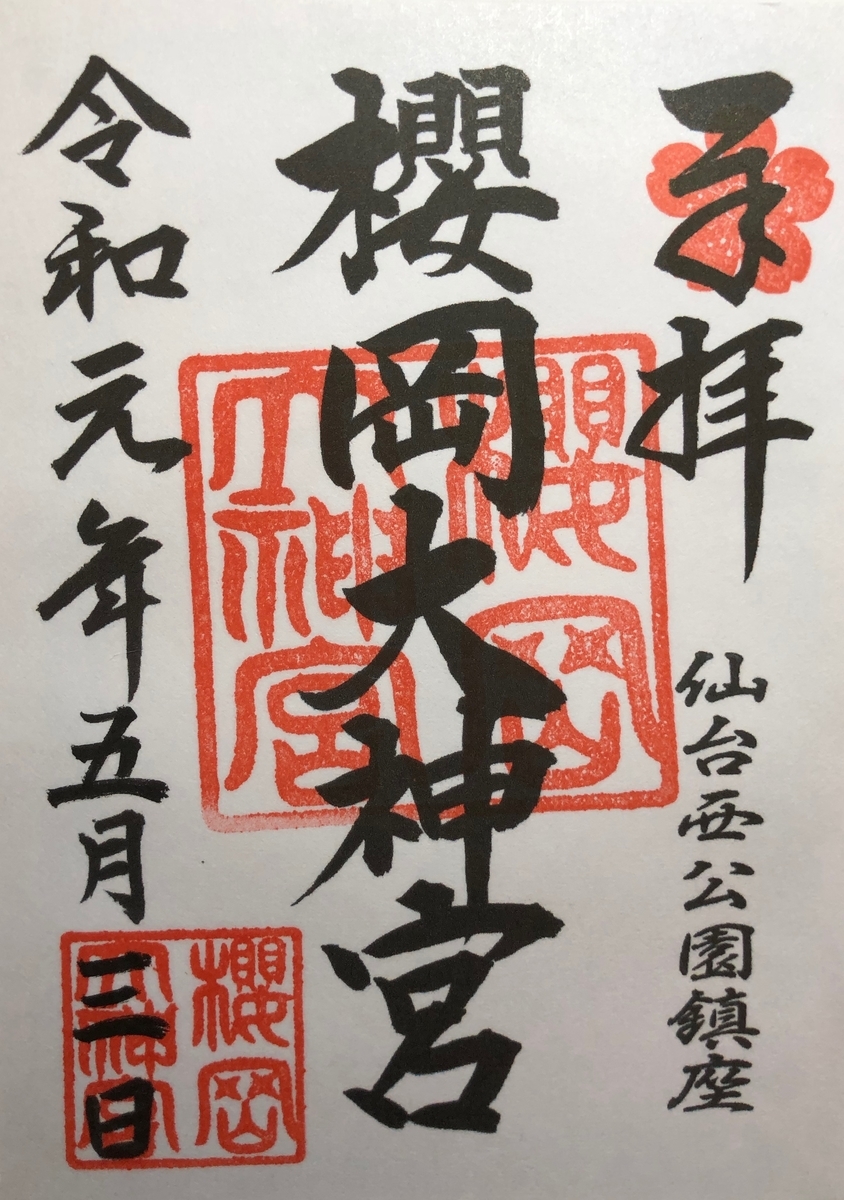 奉拝
仙台西公園鎮座
櫻岡大神宮
櫻岡
大神宮
令和元年五月三日
櫻岡
大神宮